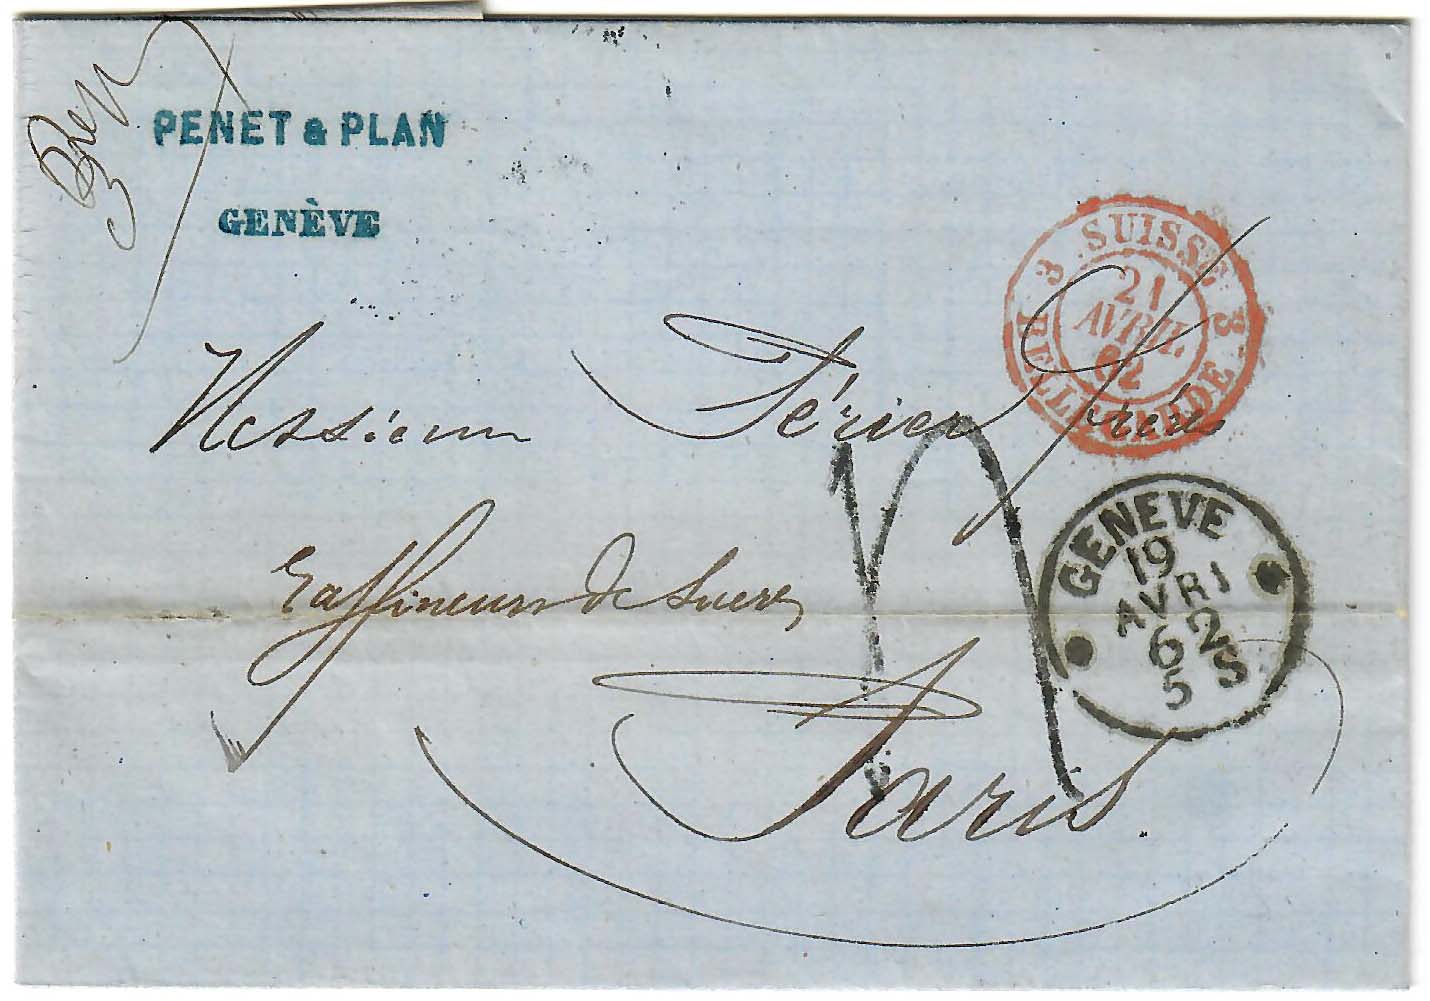 PENET & PLAN
GENÈVE
3 SUISSE 3
21
AVRIL
62
BELLEGARDE
Messieurs Périer
Raffineurs de Sucre
Paris.
GENEVE
19
AVRI
62
5 S